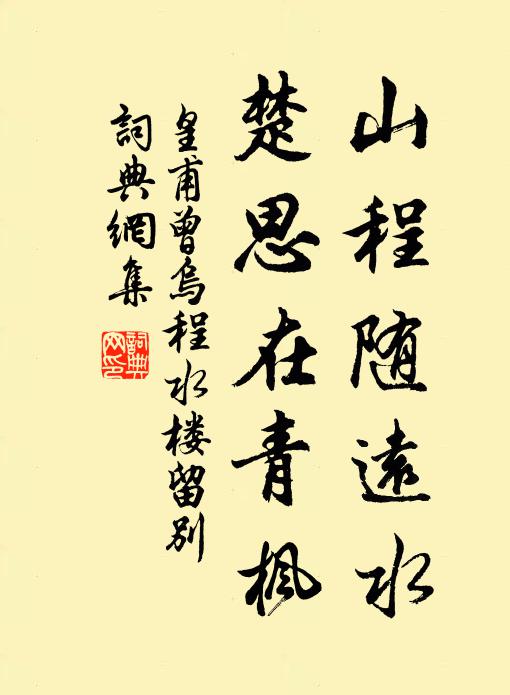 山程随遠水
楚思在青楓
皇甫曾烏程水楼留別
詞典網集
詞典网印